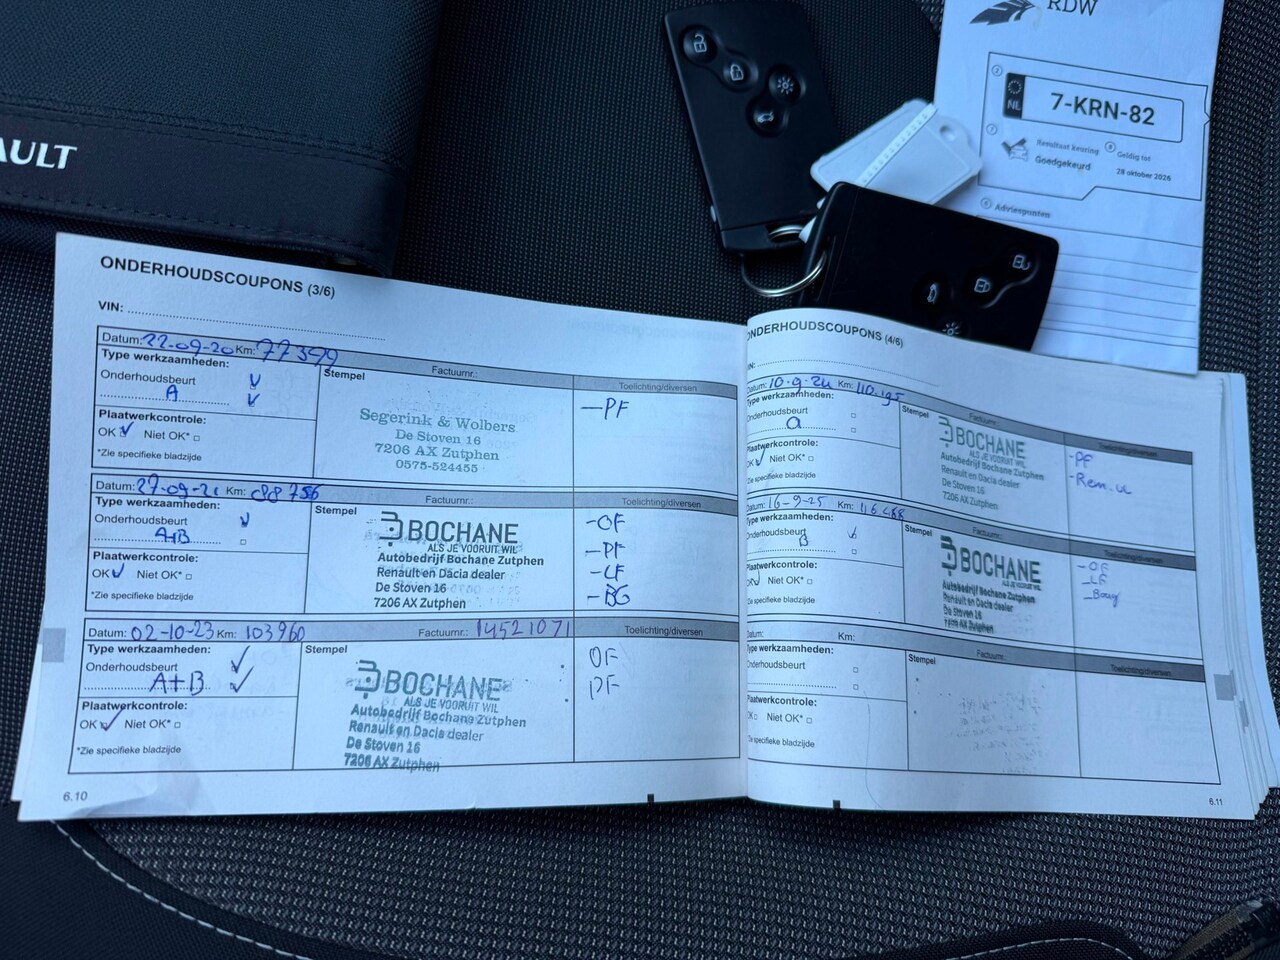 AULT
RDW
3
NL
7-KRN-82
7
Resultaat keuring
Goedgekeurd
8
Geldig tot
28 oktober 2026
6 Adviespunten
ONDERHOUDSCOUPONS (3/6)
VIN:
Datum: 22-09-20 Km: 77349
Factuurnr.:
Type werkzaamheden:
Stempel
Toelichting/diversen
Onderhoudsbeurt
A
Plaatwerkcontrole:
OK Niet OK*
*Zie specifieke bladzijde
Segerink & Wolbers
De Stoven 16
7206 AX Zutphen
0575-524455
-PF
Datum: 27-09-21 Km: 88756
Factuurnr.:
Type werkzaamheden:
Stempel
Toelichting/diversen
Onderhoudsbeurt
A+B
Plaatwerkcontrole:
OK Niet OK*
*Zie specifieke bladzijde
BOCHANE
ALS JE VOORUIT WIL
Autobedrijf Bochane Zutphen
Renault en Dacia dealer
De Stoven 16
7206 AX Zutphen
-OF
-PF
-LF
-BG
Datum: 02-10-23 Km: 103960
Factuurnr.: 14521071
Type werkzaamheden:
Stempel
Toelichting/diversen
Onderhoudsbeurt
A+B
Plaatwerkcontrole:
OK Niet OK*
*Zie specifieke bladzijde
BOCHANE
ALS JE VOORUIT WIL
Autobedrijf Bochane Zutphen
Renault en Dacia dealer
De Stoven 16
7206 AX Zutphen
OF
PF
6.10
ONDERHOUDSCOUPONS (4/6)
VIN:
Datum: 10-9-24 Km: 110.195
Factuurnr.:
Type werkzaamheden:
Stempel
Toelichting/diversen
Onderhoudsbeurt
a
Plaatwerkcontrole:
OK Niet OK*
*Zie specifieke bladzijde
BOCHANE
ALS JE VOORUIT WIL
Autobedrijf Bochane Zutphen
Renault en Dacia dealer
De Stoven 16
7206 AX Zutphen
-PF
-Rem.vl
Datum: 16-9-25 Km: 116468
Factuurnr.:
Type werkzaamheden:
Stempel
Toelichting/diversen
Onderhoudsbeurt
B
Plaatwerkcontrole:
OK Niet OK*
*Zie specifieke bladzijde
BOCHANE
ALS JE VOORUIT WIL
Autobedrijf Bochane Zutphen
Renault en Dacia dealer
De Stoven 16
7206 AX Zutphen
-OF
-LF
-Boug
Datum: Km:
Factuurnr.:
Type werkzaamheden:
Stempel
Toelichting/diversen
Onderhoudsbeurt
Plaatwerkcontrole:
OK Niet OK*
*Zie specifieke bladzijde
6.11